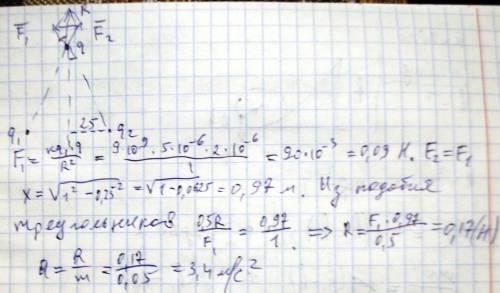 R
F̅₁ F̅₂
q
q₁ 25 q₂
F₁ = kq₁q/R² = 9·10⁹·5·10⁻⁶·2·10⁻⁶/1 = 90·10⁻³ = 0,09 Н. F₂=F₁
x = √1²-0,25² = √1-0,0625 = 0,97 м. Из подобия
треугольников 0,5R/F₁ = 0,97/1 => R = F₁·0,97/0,5 = 0,17(Н)
a = R/m = 0,17/0,05 = 3,4 м/с²